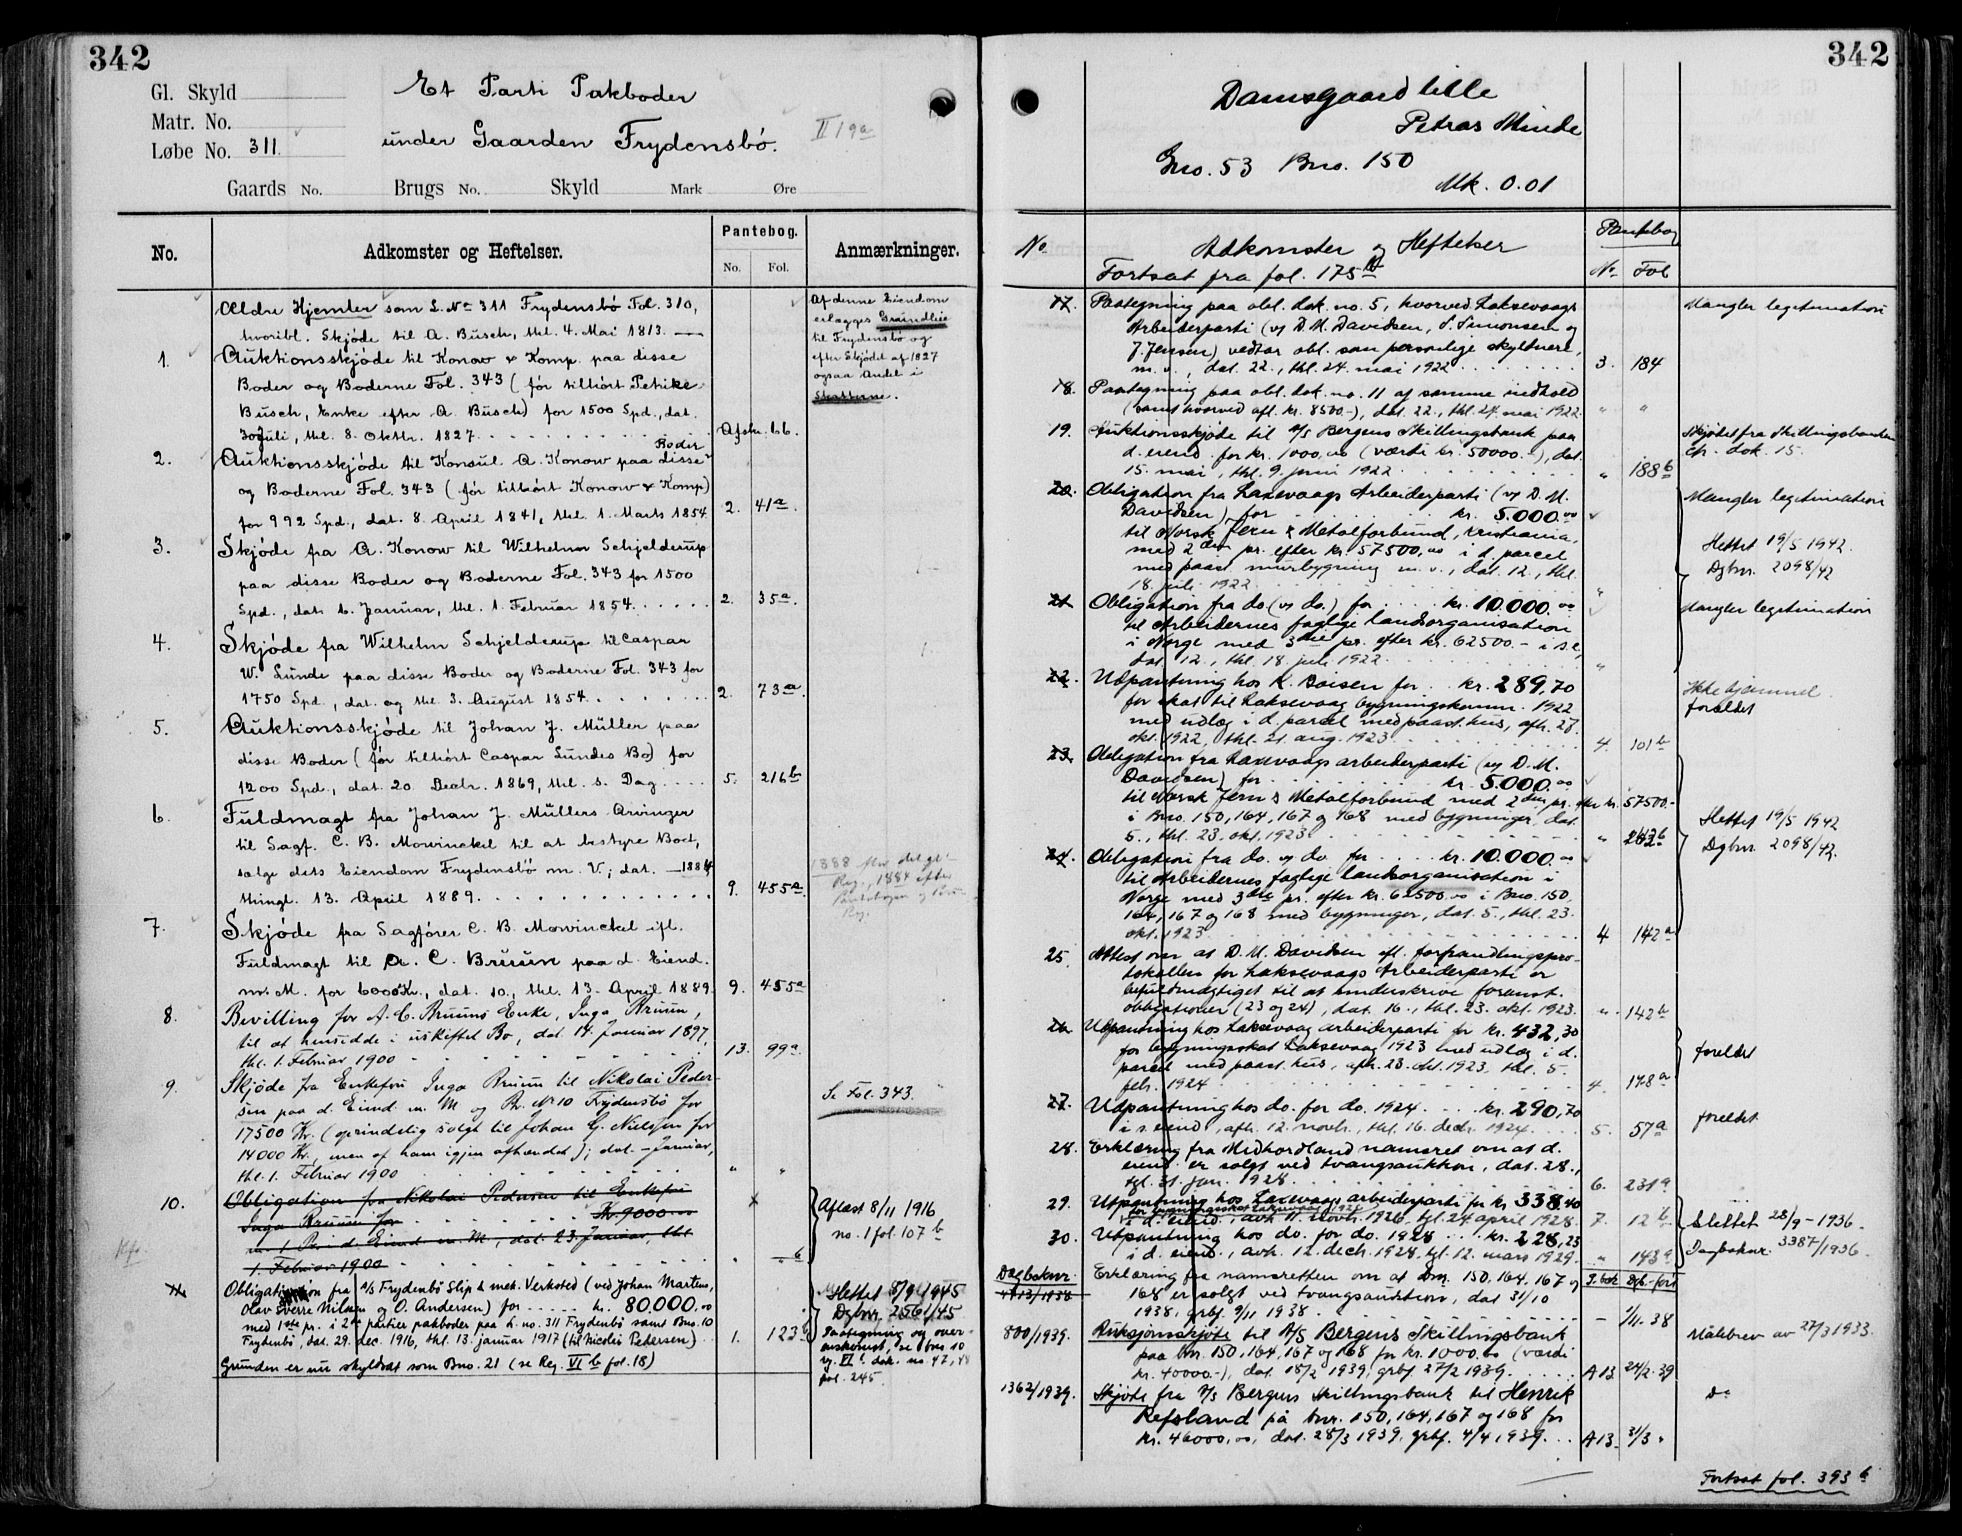 342
Gl. Skyld
Matr. No.
Løbe No. 311.
Et Parti Pakboder
under Gaarden Frydensbö.
II 19a
Gaards No. Brugs No. Skyld Mark Øre
No. Adkomster og Heftelser. Pantebog. No. Fol. Anmærkninger.
Ældre Hjemler som L. No 311 Frydensbö Fol. 310,
hvoribl. Skjöde til A. Busch, thl. 4. Mai 1813.
Af denne Eiendom
erlægges Grundleie
til Frydensbö og
efter Skjödet af 1827
ogsaa Andel i
Skatterne.
1. Auktionsskjöde til Konow & Komp. paa disse
Boder og Boderne Fol. 343 (för tilhört Petrike
Busch, Enke efter A. Busch) for 1500 Spd., dat.
30 Juli, thl. 8. Oktbr. 1827. Afskr. 66.
2. Auktionsskjöde til Konsul A. Konow paa disse Boder
og Boderne Fol. 343 (för tilhört Konow & Komp)
for 992 Spd., dat. 8. April 1841, thl. 1. Marts 1854. 2. 41a.
3. Skjöde fra A. Konow til Wilhelm Schjelderup
paa disse Boder og Boderne Fol. 343 for 1500
Spd., dat. 6. Januar, thl. 1. Februar 1854. 2. 35a.
4. Skjöde fra Wilhelm Schjelderup til Caspar
W. Lunde paa disse Boder og Boderne Fol. 343 for
1750 Spd., dat. og thl. 3. August 1854. 2. 73a.
5. Auktionsskjöde til Johan J. Müller paa
disse Boder (för tilhört Caspar Lundes Bo) for
1200 Spd., dat. 20. Decbr. 1869, thl. s. Dag. 5. 216b
6. Fuldmagt fra Johan J. Müllers Arvinger
til Sagf. C. B. Mowinckel til at bestyre Boet,
sælge dets Eiendom Frydensbö m. V.; dat. — 1884
thingl. 13. April 1889. 9. 455a
7. Skjöde fra Sagförer C. B. Mowinckel ifl.
Fuldmagt til A. C. Bruun paa d. Eiend.
m. M. for 6000 Kr., dat. 10., thl. 13. April 1889. 9. 455a
8. Bevilling for A. C. Bruuns Enke, Inga Bruun,
til at hensidde i uskiftet Bo, dat. 14. Januar 1897,
thl. 1. Februar 1900 13. 99a.
9. Skjöde fra Enkefru Inga Bruun til Nikolai Peder-
sen paa d. Eiend. m. M og Br. No 10 Frydensbö for
17500 Kr. (oprindelig solgt til Johan G. Nielsen for
14000 Kr., men af ham igjen afhændet); dat. — Januar,
thl. 1. Februar 1900 " "
Se Fol. 343.
10. Obligation fra Nikolai Pedersen til Enkefru
Inga Bruun for Kr. 9000
m. 1. Pr. i d. Eiend. m. M., dat. 23. Januar, thl.
1. Februar 1900 " b
Aflæst 8/11 1916
no. 1 fol. 107b
11. Obligation fra A/S Frydenbö Slip & mek. Verksted (ved Johan Martens,
Olav Sverre Nilsen og O. Andersen) for kr. 80,000.00
med 1ste pr. i 2de partier pakboder paa L. no. 311 Frydenbö samt Bno. 10
Frydenbö, dat. 29. dec. 1916, thl. 13. januar 1917 (til Nicolai Pedersen) 1. 123b
Grunden er nu skyldsat som Bno. 21 (se Reg. VIb fol. 18)
Slettet 8/9 1945
Dgbnr. 2561/45
342
Damsgaard lille
Petras Minde
Gno. 53 Bno. 150
Mk. 0.01
No Adkomster og Heftelser Pantebog No Fol
Fortsat fra fol. 175b
17. Paategning paa obl. dok. no. 5, hvorved Laksevaags
Arbeiderparti (v/ D. M. Davidsen, S. Simonsen og
J. Jensen) vedtar obl. som personlige skyldnere,
m. v., dat. 22., thl. 24. mai 1922 3. 184
Mangler legitimation
18. Paategning paa obl. dok. no. 11 af samme indhold
(samt hvorved afl. kr. 8500.-), dat. 22., thl. 24. mai 1922. " "
19. Auktionsskjøte til A/S Bergens Skillingsbank paa
d. eiend. for kr. 1000,00 (værdi kr. 50000.-), dat.
15. mai, thl. 9. juni 1922. " 188b
Skjødet fra Skillingsbanken
cfr. dok. 15.
20. Obligation fra Laxevaags Arbeiderparti (v/ D. M.
Davidsen) for kr. 5.000.00
til Norsk Jern & Metalforbund, Kristiania,
med 2den pr. efter kr. 57500,00 i d. parcel
med paast. murbygning m. v., dat. 12., thl.
18. juli 1922. "
Mangler legitimation
Slettet 19/5 1942.
Dgbnr. 2098/42
21. Obligation fra do (v/ do.) for kr. 10.000.00
til Arbeidernes faglige landsorganisation
i Norge med 3die pr. efter kr. 62500.- i s.e.,
dat. 12., thl. 18. juli 1922. "
Mangler legitimation
22. Udpantning hos K. Boisen for kr. 289,70
for skat til Laksevaag bygningskomm. 1922
med udlæg i d. parcel med paast. hus, afh. 27.
okt. 1922, thl. 21. aug. 1923. 4. 101b
Ikke hjemmel.
foreldet
23. Obligation fra Laxevaags arbeiderparti (v/ D. M.
Davidsen) for kr. 5000.00
til Norsk Jern & Metalforbund med 2den pr. efter kr. 57500.-
i Bno. 150, 164, 167 og 168 med bygninger, dat.
5., thl. 23. okt. 1923. "
Slettet 19/5 1942
Dgbnr. 2098/42.
24. Obligation fra do. v/ do. for kr. 10.000.00
til Arbeidernes faglige landsorganisation i
Norge med 3die pr. efter kr. 62500.00 i Bno. 150,
164, 167 og 168 med bygninger, dat. 5., thl. 23.
okt. 1923 4 142a
25. Attest om at D. M. Davidsen ifl. forhandlingspro-
tokollen for Laksevaags Arbeiderparti er
befuldmægtiget til at underskrive foranst.
obligationer (23 og 24), dat. 16., thl. 23. okt. 1923. " 142b
26. Udpantning hos Laksevaag arbeiderparti for kr. 432,30
for bygningsskat Laksevaag 1923 med udlæg i d.
parcel med paast. hus, afh. 23. okt. 1923, thl. 5.
febr. 1924 4. 178a
foreldet
27. Udpantning hos do. for do. 1924 kr. 290,70
i s. eiend., afh. 12. novbr., thl. 16. decbr. 1924. 5. 57a
foreldet
28. Erklæring fra Midhordland namsret om at d.
eiend. er solgt ved tvangsauktion, dat. 28.,
tgl. 31. jan. 1928. 6. 231a
29. Utpantning hos Laxevaags arbeiderparti for kr. 338,40
for bygningsskat Laksevaag 1926
i d. eiend., avh. 11. novbr. 1926, tgl. 24 april 1928. 7. 12b
Slettet 28/9-1936.
Dagboknr. 3387/1936.
30. Utpantning hos do. for do. 1928 kr. 228,23
i d. eiend., avh. 12. decbr. 1928, tgl. 12. mars 1929. " 143a
Dagboknr.
4713/1938
Erklæring fra namsretten om at bnr. 150, 164, 167 og
168 er solgt ved tvangsauktion, dat 31/10
1938, grbf. 9/11 1938.
800/1939. Auksjonsskjøte til A/S Bergens Skillingsbank
paa bnr. 150, 164, 167 og 168 for kr. 1000,00 (værdi
kr. 40000.-), dat. 18/2 1939, grbf. 27/2 1939. A13 24/2.39
Målebrev av 27/3 1933.
1362/1939. Skjøte fra A/S Bergens Skillingsbank til Henrik
Refsland på bnr. 150, 164, 167 og 168 for
kr. 46000,00, dat. 28/3 1939, grbf. 4/4 1939. A13. 31/3 "
Do
Fortsat fol. 393b